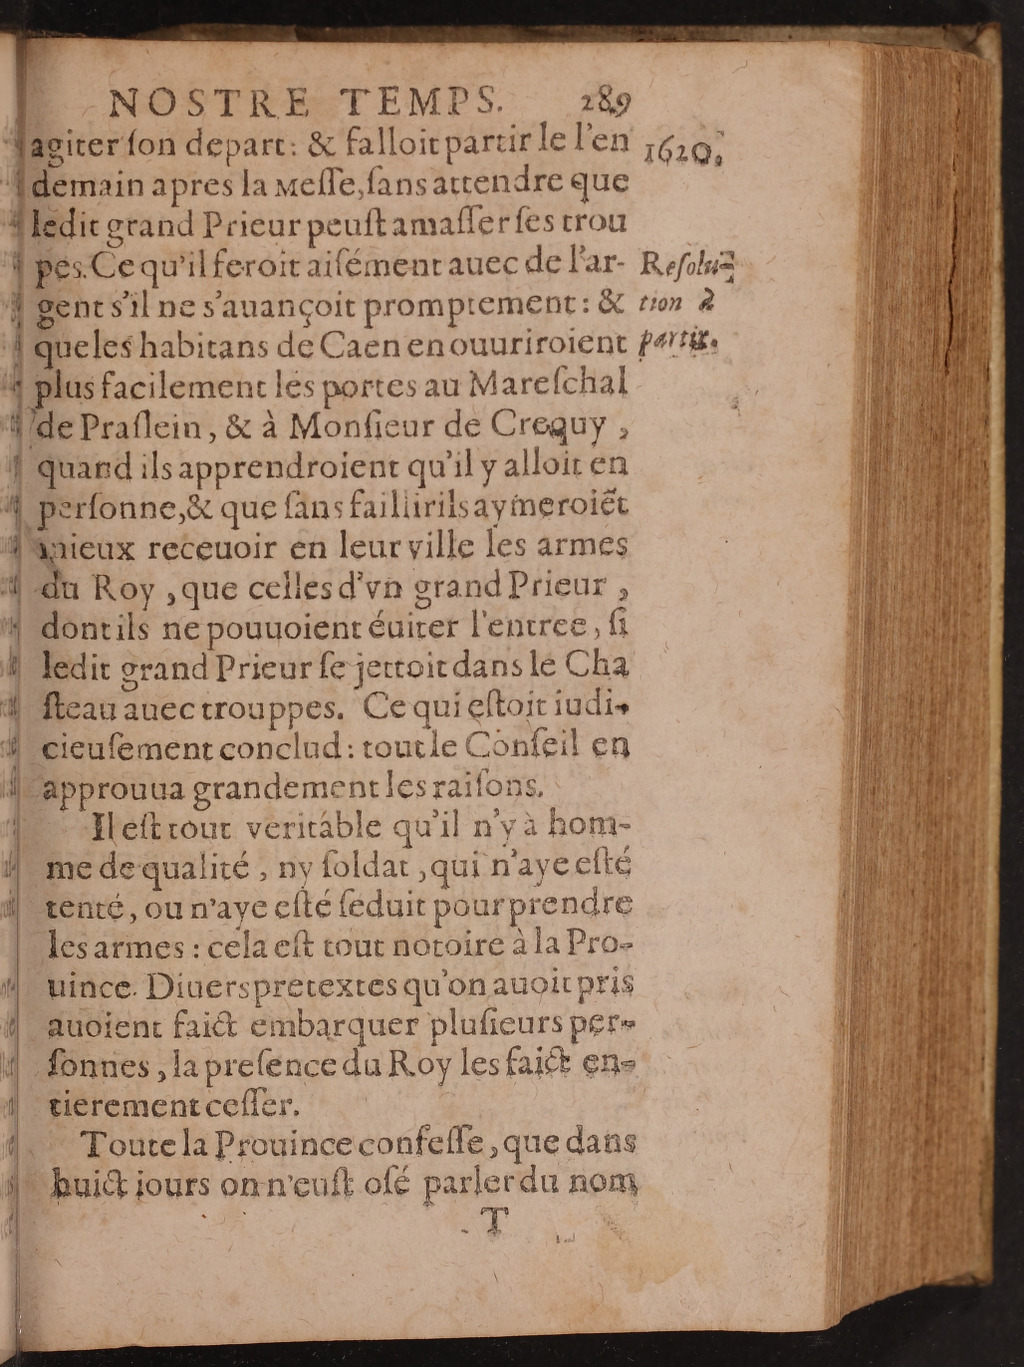 NOSTRE TEMPS. 289
agiter ſon depart: & falloit partir le l'en
1620.
demain apres la Meſſe, ſans attendre que
ledit grand Prieur peuſt amaſſer ſes trou
pes. Ce qu'il feroit aiſément auec de l'ar-
Reſolu-
gent s'il ne s'auançoit promptement: &
tion à
que les habitans de Caen en ouuriroient
partir.
plus facilement les portes au Mareſchal
de Praſlein, & à Monſieur de Crequy,
quand ils apprendroient qu'il y alloit en
perſonne, & que ſans faillir ils aymeroiẽt
mieux receuoir en leur ville les armes
du Roy, que celles d'vn grand Prieur,
dont ils ne pouuoient éuiter l'entree, ſi
ledit grand Prieur ſe jettoit dans le Cha
ſteau auec trouppes. Ce qui eſtoit iudi-
cieuſement conclud: tout le Conſeil en
approuua grandement les raiſons.
Il eſt tout veritable qu'il n'y à hom-
me de qualité, ny ſoldat, qui n'aye eſté
tenté, ou n'aye eſté ſéduit pour prendre
les armes: cela eſt tout notoire à la Pro-
uince. Diuers pretextes qu'on auoit pris
auoient faict embarquer pluſieurs per-
ſonnes, la preſence du Roy les faict en-
tierement ceſſer.
Toute la Prouince confeſſe, que dans
huict iours on n'euſt oſé parler du nom
T